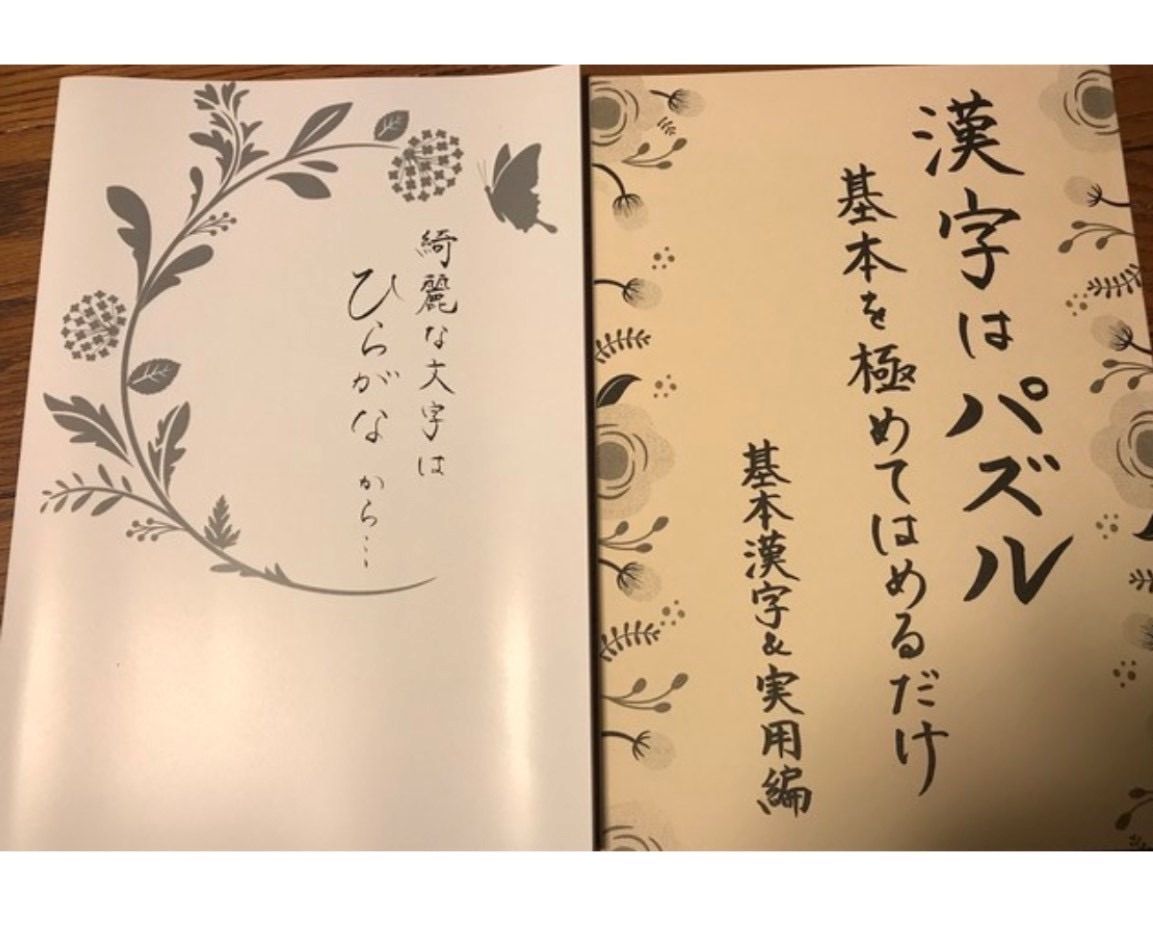 綺麗な文字は
ひらがなから…
漢字はパズル
基本を極めてはめるだけ
基本漢字&実用編